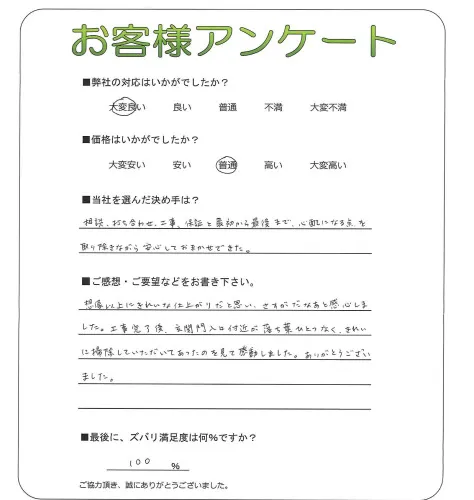 お客様アンケート
■弊社の対応はいかがでしたか？
大変良い 良い 普通 不満 大変不満
■価格はいかがでしたか？
大変安い 安い 普通 高い 大変高い
■当社を選んだ決め手は？
相談、打ち合わせ、工事、保証と最初から最後まで、心配になる点を
取り除きながら安心しておまかせできた。
■ご感想・ご要望などをお書き下さい。
想像以上にきれいな仕上がりだと思い、さすがだなあと感心しま
した。工事完了後、玄関門入口付近が落ち葉ひとつなく、きれい
に掃除していただいてあったのを見て感動しました。ありがとうござい
ました。
■最後に、ズバリ満足度は何%ですか？
100 %
ご協力頂き、誠にありがとうございました。